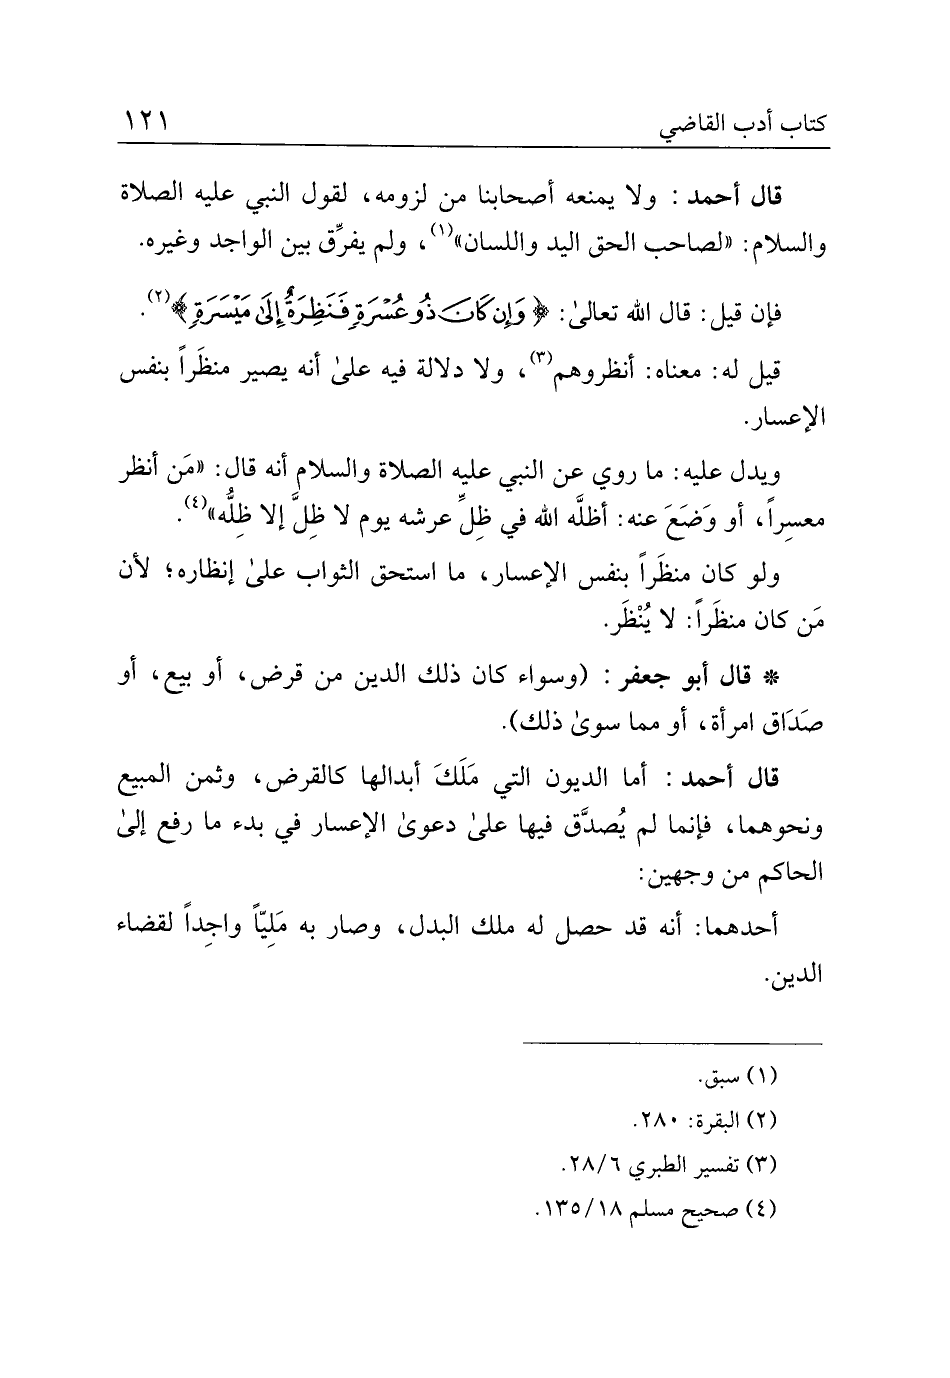 كتاب أدب القاضي ١٢١
قال أحمد : ولا يمنعه أصحابنا من لزومه، لقول النبي عليه الصلاة
والسلام: «لصاحب الحق اليد واللسان»(١)، ولم يفرِّق بين الواجد وغيره.
فإن قيل: قال الله تعالىٰ: ﴿وَإِن كَانَ ذُو عُسْرَةٍ فَنَظِرَةٌ إِلَىٰ مَيْسَرَةٍ﴾(٢).
قيل له: معناه: أنظروهم(٣)، ولا دلالة فيه علىٰ أنه يصير منظَراً بنفس
الإعسار.
ويدل عليه: ما روي عن النبي عليه الصلاة والسلام أنه قال: «مَن أنظر
معسِراً، أو وَضَعَ عنه: أظلَّه الله في ظِلِّ عرشه يوم لا ظِلَّ إلا ظِلُّه»(٤).
ولو كان منظَراً بنفس الإعسار، ما استحق الثواب علىٰ إنظاره؛ لأن
مَن كان منظَراً: لا يُنْظَر.
* قال أبو جعفر : (وسواء كان ذلك الدين من قرض، أو بيع، أو
صَدَاق امرأة، أو مما سوىٰ ذلك).
قال أحمد : أما الديون التي مَلَكَ أبدالها كالقرض، وثمن المبيع
ونحوهما، فإنما لم يُصدَّق فيها علىٰ دعوىٰ الإعسار في بدء ما رفع إلىٰ
الحاكم من وجهين:
أحدهما: أنه قد حصل له ملك البدل، وصار به مَلِيّاً واجِداً لقضاء
الدين.
(١) سبق.
(٢) البقرة: ٢٨٠.
(٣) تفسير الطبري ٢٨/٦.
(٤) صحيح مسلم ١٣٥/١٨.